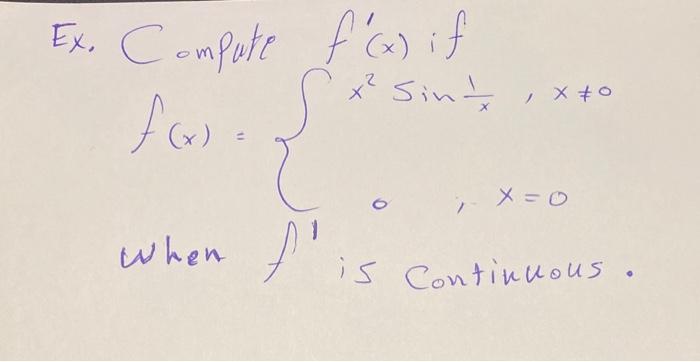 Ex. Compute f'(x) if
f(x) = { x² Sin 1/x , x ≠ 0
0 , x = 0
when f' is continuous.